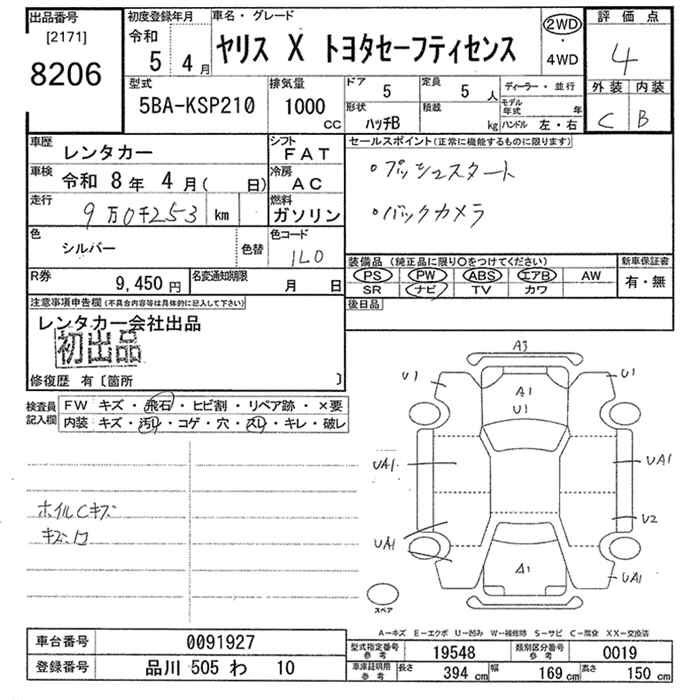 出品番号
[2171]
8206
初度登録年月
令和
5 4月
車名・グレード
ヤリス X トヨタセーフティセンス
2WD
・
4WD
評価点
4
外装 内装
C B
型式
5BA-KSP210
排気量
1000
CC
ドア
5
定員
5 人
形状
ハッチB
積載
kg
ディーラー・並行
モデル年式 年
ハンドル 左・右
車歴
レンタカー
シフト
FAT
車検
令和 8年 4月( 日)
冷房
AC
走行
9万0千253 km
燃料
ガソリン
色
シルバー
色替
色コード
1L0
R券
9,450円
名変通知期限
月 日
セールスポイント(正常に機能するものに限ります)
・プッシュスタート
・バックカメラ
装備品(純正品に限り○をつけてください)
PS PW ABS エアB AW
SR ナビ TV カワ
新車保証書
有・無
後日品
注意事項申告欄(不具合内容等は具体的に記入して下さい)
レンタカー会社出品
初出品
修復歴 有〔箇所 〕
検査員記入欄
FW キズ・飛石・ヒビ割・リペア跡・×要
内装 キズ・汚レ・コゲ・穴・スレ・キレ・破レ
ホイルCキズ
A3
U1 U1
A1
U1
UA1 UA1
U2
UA1
A1
UA1
スペア
A―キズ E―エクボ U―凹み W―補修跡 S―サビ C―腐食 XX―交換済
車台番号 0091927
登録番号 品川 505 わ 10
型式指定番号 参考 19548
類別区分番号 参考 0019
車庫証明用 参考 長さ 394 cm 幅 169 cm 高さ 150 cm